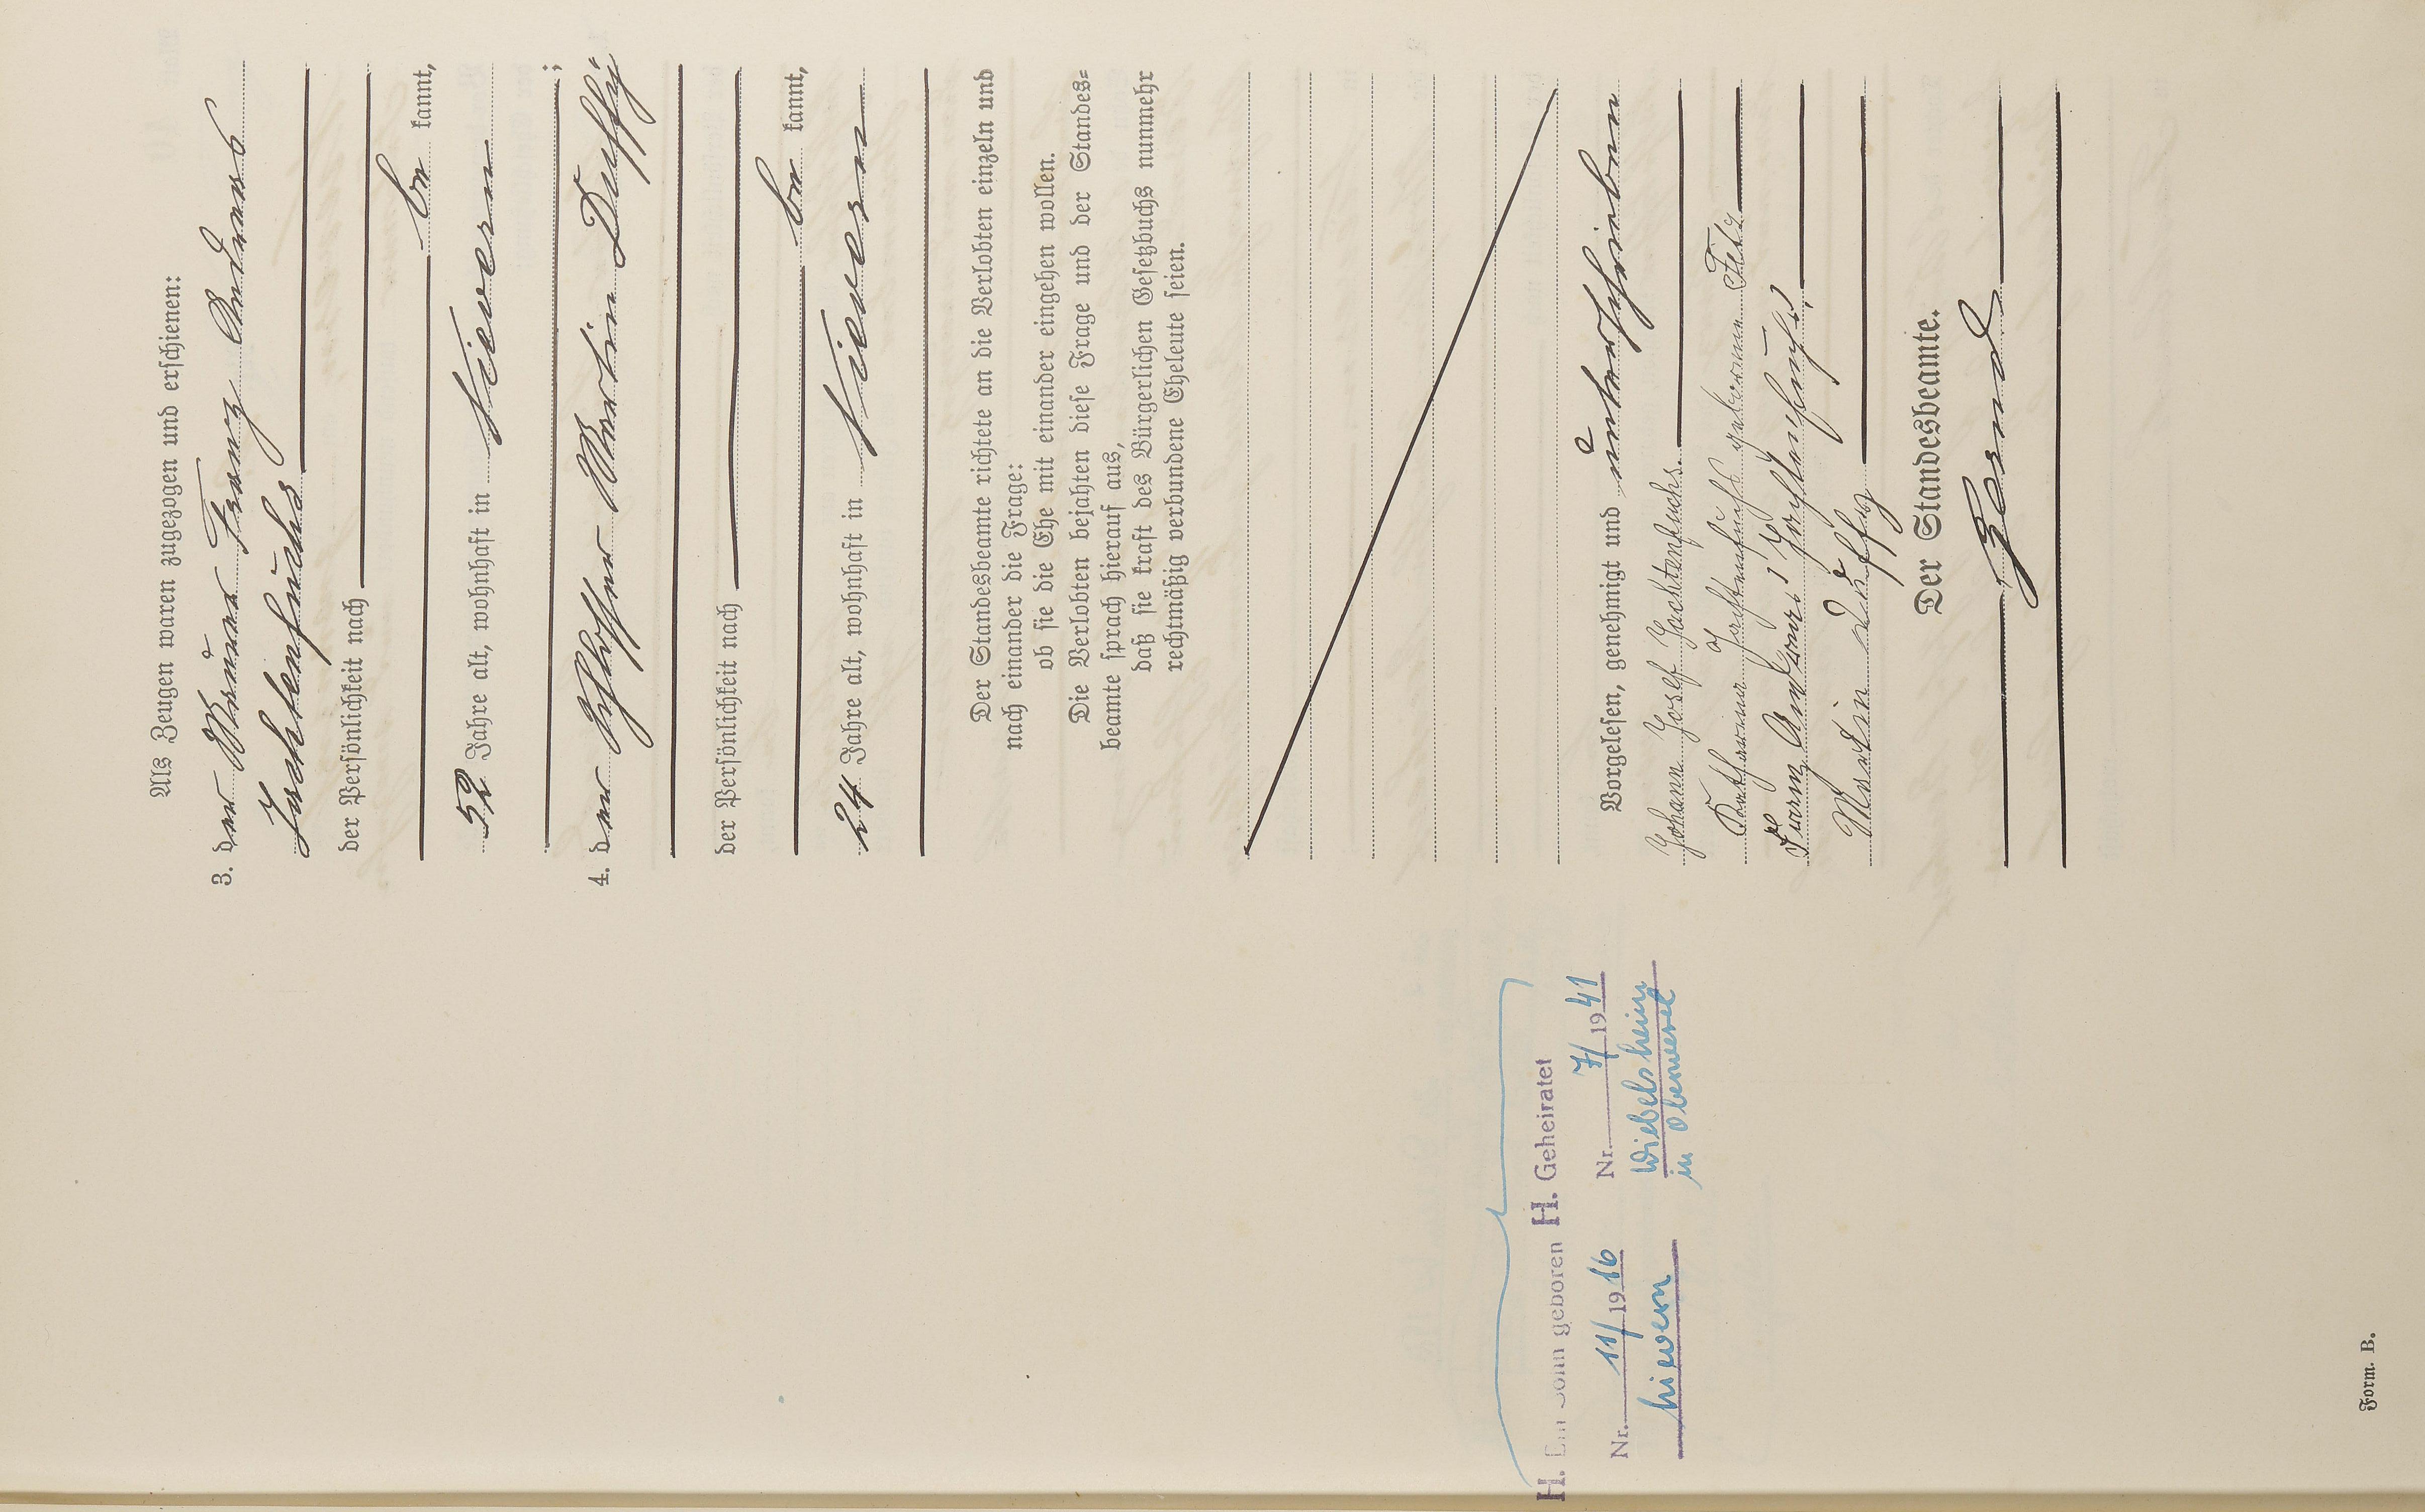 Als Zeugen waren zugezogen und erschienen:
3. der Maurer Franz Andreas
Jachtenfuchs
der Persönlichkeit nach
be kannt,
52 Jahre alt, wohnhaft in Nievern
;
4. der Schlosser Martin Duffy
der Persönlichkeit nach
be kannt,
24 Jahre alt, wohnhaft in Nievern
Der Standesbeamte richtete an die Verlobten einzeln und
nach einander die Frage:
ob sie die Ehe mit einander eingehen wollen.
Die Verlobten bejahten diese Frage und der Standes=
beamte sprach hierauf aus,
daß sie kraft des Bürgerlichen Gesetzbuchs nunmehr
rechtmäßig verbundene Eheleute seien.
Vorgelesen, genehmigt und unterschrieben
Johann Josef Jachtenfuchs.
Katharina Jachtenfuchs geborene
Franz Andreas Jachtenfuchs
Martin Duffy
Der Standesbeamte.
H. Ein Sohn geboren
Nr. 11/1916
Nievern
H. Geheiratet
Nr. 7/1941
Wiebelsheim
in Oberwesel
Form. B.